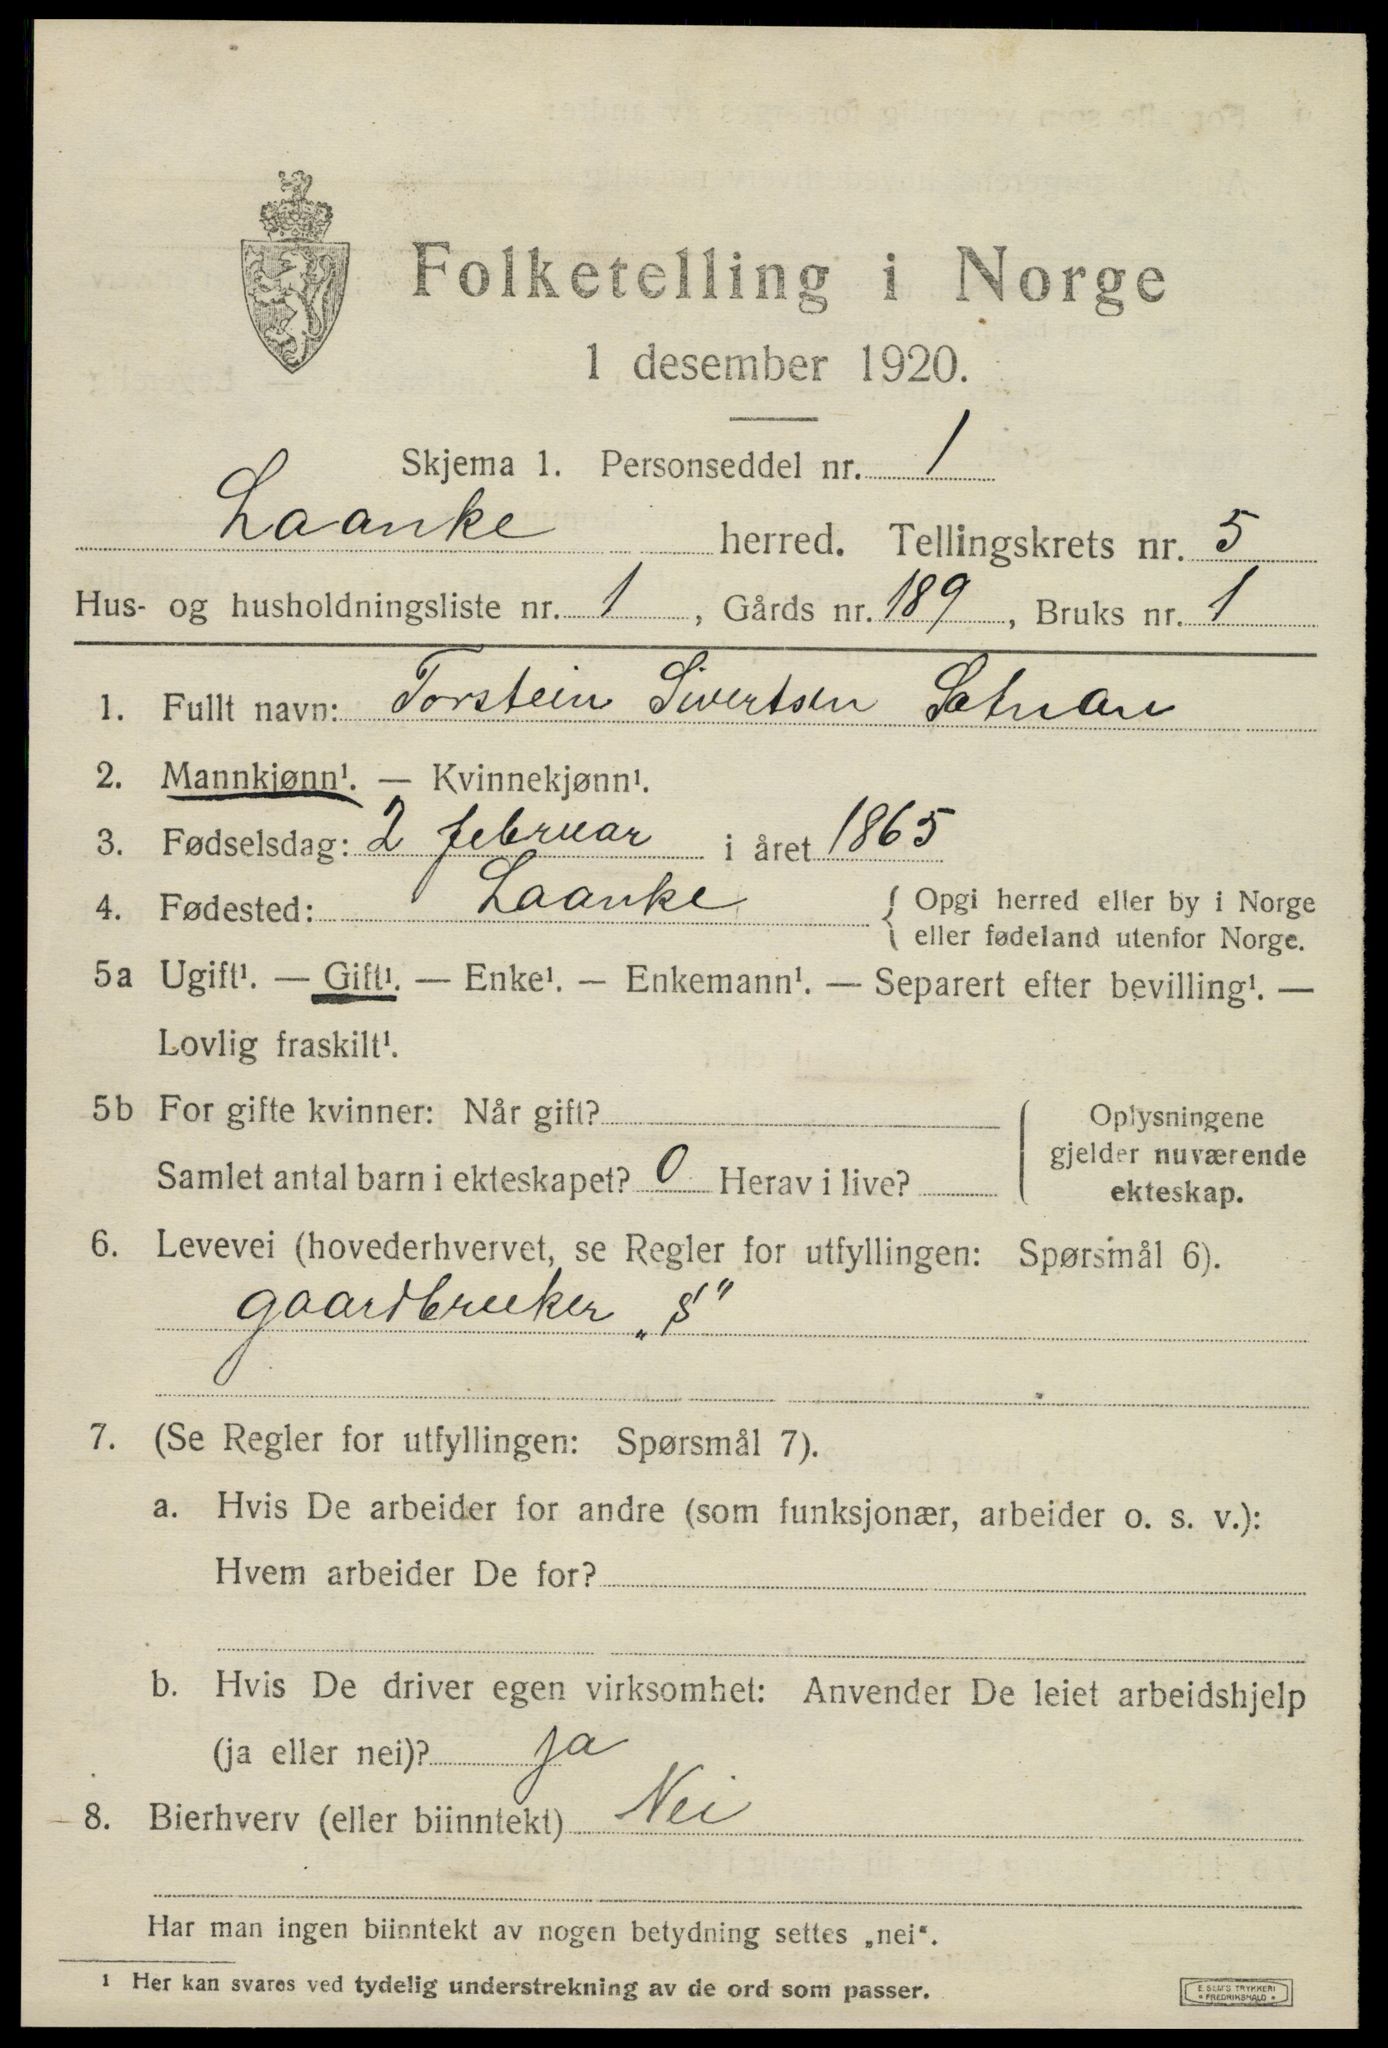 Folketelling i Norge
1 desember 1920.
Skjema 1. Personseddel nr. 1
Laanke herred. Tellingskrets nr. 5
Hus- og husholdningsliste nr. 1, Gårds nr. 189, Bruks nr. 1
1. Fullt navn: Torstein Sivertsen
2. Mannkjønn¹. — Kvinnekjønn¹.
3. Fødselsdag: 2 februar i året 1865
4. Fødested: Laanke { Opgi herred eller by i Norge
eller fødeland utenfor Norge.
5a Ugift¹. — Gift¹. — Enke¹. — Enkemann¹. — Separert efter bevilling¹. —
Lovlig fraskilt¹.
5b For gifte kvinner: Når gift?
Samlet antal barn i ekteskapet? 0 Herav i live?
Oplysningene
gjelder nuværende
ekteskap.
6. Levevei (hovederhvervet, se Regler for utfyllingen: Spørsmål 6).
gaardbruker „S"
7. (Se Regler for utfyllingen: Spørsmål 7).
a. Hvis De arbeider for andre (som funksjonær, arbeider o. s. v.):
Hvem arbeider De for?
b. Hvis De driver egen virksomhet: Anvender De leiet arbeidshjelp
(ja eller nei)? ja
8. Bierhverv (eller biinntekt) Nei
Har man ingen biinntekt av nogen betydning settes „nei“.
1 Her kan svares ved tydelig understrekning av de ord som passer.
E SEM'S TRYKKERI
* FREDRIKSHALD *